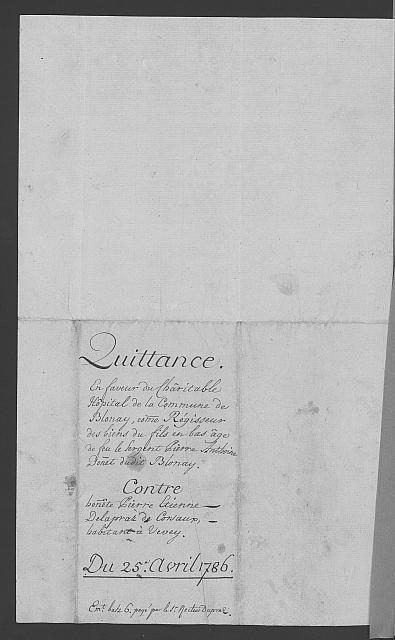 Quittance.
En faveur du Charitable
Hôpital de la Commune de
Blonay, cõme Régisseur
des biens du fils en bas âge
de feu le Sergent Pierre Anthoine
Dénet dudit Blonay.
Contre
honête Pierre Etienne
Delapraz de Corsaux,
habitant à Vevey.
Du 25.e Avril 1786.
6. payé par le Sr. Recteur Dupraz.